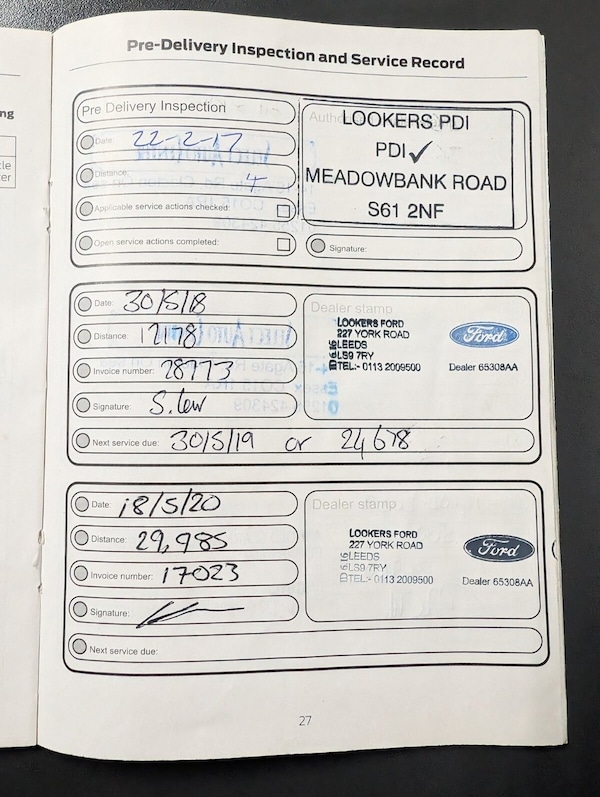 Pre-Delivery Inspection and Service Record
Pre Delivery Inspection
Date: 22-2-17
Distance: 4
Applicable service actions checked:
Open service actions completed:
LOOKERS PDI
PDI ✓
MEADOWBANK ROAD
S61 2NF
Signature:
Date: 30/5/18
Distance: 12178
Invoice number: 28773
Signature: S. Lew
Next service due: 30/5/19 or 24,678
Dealer stamp
LOOKERS FORD
227 YORK ROAD
LEEDS
LS9 7RY
TEL:- 0113 2009500
Ford
Dealer 65308AA
Date: 18/5/20
Distance: 29,985
Invoice number: 17023
Signature:
Next service due:
Dealer stamp
LOOKERS FORD
227 YORK ROAD
LEEDS
LS9 7RY
TEL:- 0113 2009500
Ford
Dealer 65308AA
27
ng
cle
ter